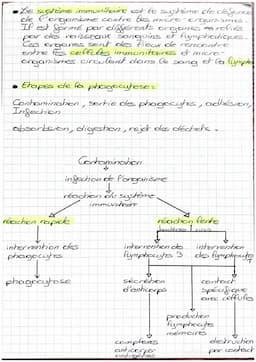 • Le système immunitaire est le système de défense
de l'organisme contre les micro-organismes.
Il est formé par différents organes reliés
par des vaisseaux sanguins et lymphatiques.
Ces organes sont des lieux de rencontre
entre les cellules immunitaires et micro-
organismes circulant dans le sang et la lymphe
• Etapes de la phagocytose:
Contamination, sortie des phagocytes, adhésion,
Infection
absorbtion, digestion, rejet des déchets.
Contamination
infection de l'organisme
réaction du système
immunitaire
réaction rapide
réaction lente
intervention des
phagocytes
intervention des
lymphocytes B
intervention
des lymphocytes T
phagocytose
sécrétion
d'anticorps
contact
spécifique
avec cellules
production
lymphocytes
mémoires
complexes
anticorps
antigènes
destruction
par contact